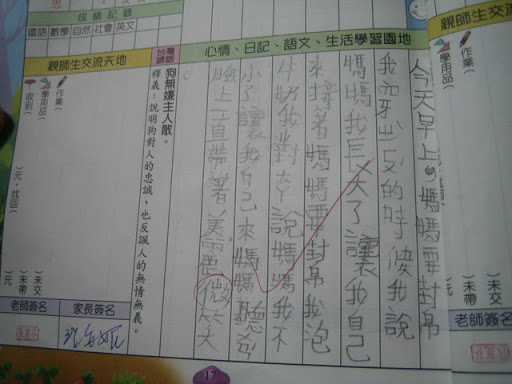 成績記錄
國語 數學 自然 社會 英文
親師生交流天地
作業(
學用品(
收到(
)元,找回(
)未交
)未帶
)元
老師簽名
家長簽名
台灣諺語
狗無嫌主人散。
釋義:說明狗對人的忠誠,也反諷人的無情無義。
心情、日記、語文、生活學習園地
今天早上媽媽要幫
我穿的時候我說
媽媽我長大了讓我自己
來接著媽媽要幫我泡
牛奶我對說媽媽我不
小了讓我自己來媽媽聽
臉上一直帶著微笑
親師生交流天地
作業(
學用品(
)元,找回(
)未交
)未帶
)元
老師簽名
17